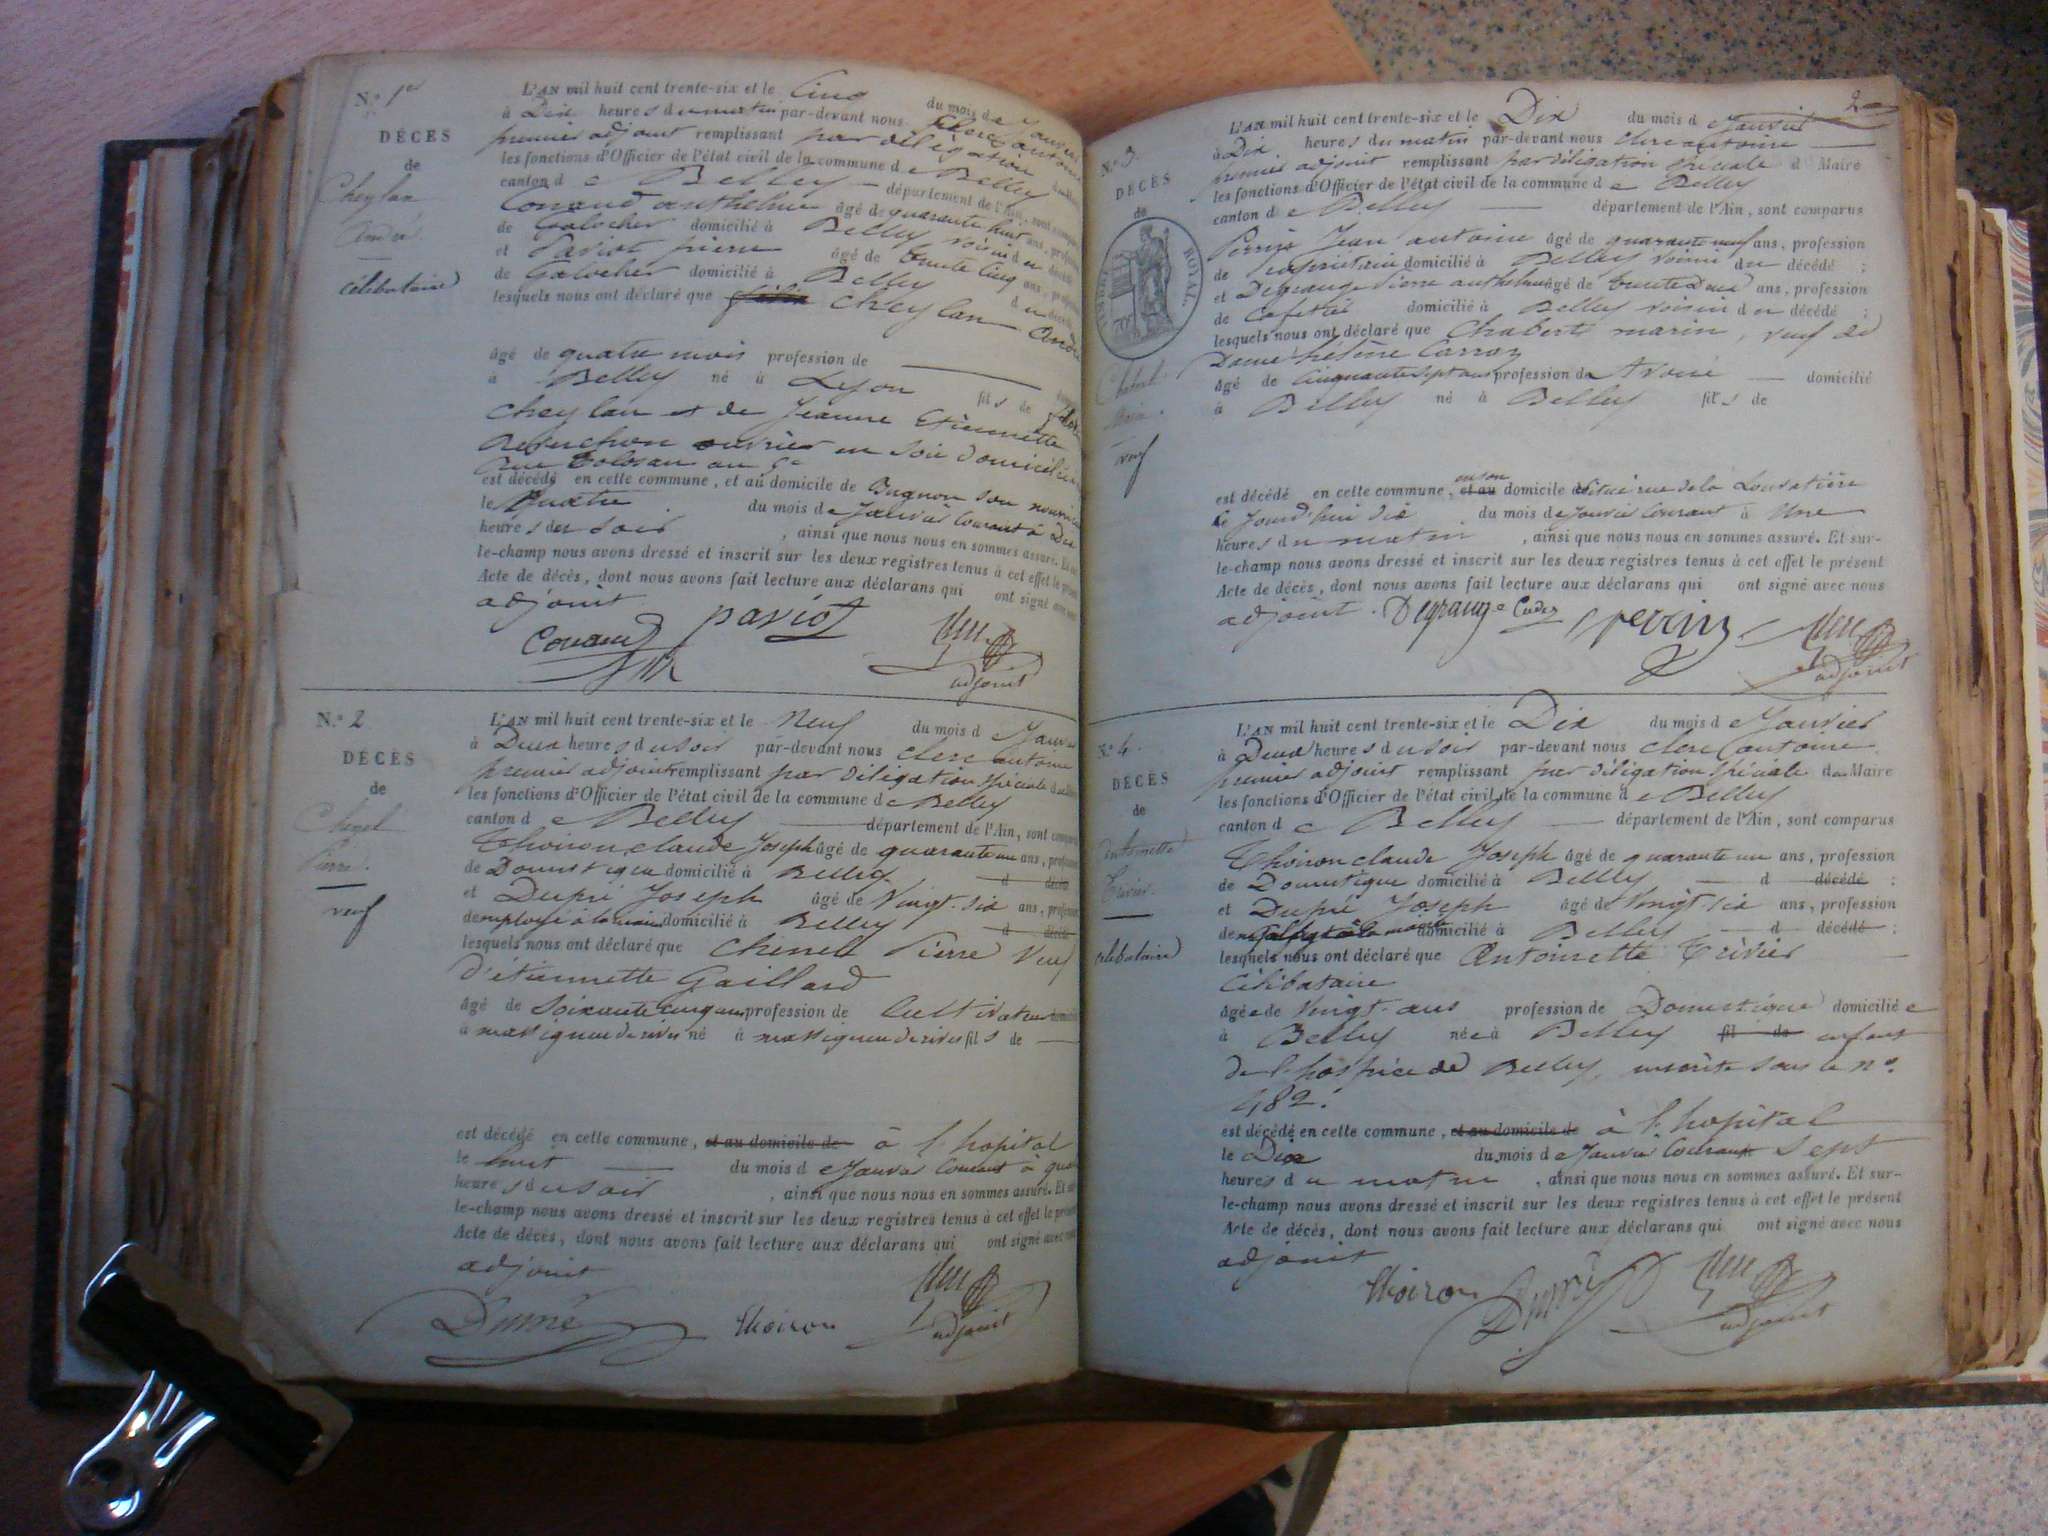 N.o 1er
DÉCÈS
de
Cheylan
André.
célibataire
L'AN mil huit cent trente-six et le Cinq du mois de Janvier
à Dix heures du matin par-devant nous Clerc antoine
premier adjoint remplissant par délégation
les fonctions d'Officier de l'état civil de la commune de Belley
canton de Belley — département de l'Ain, sont comparus
Conand anthelme âgé de quarante huit ans, profession
de Galocher domicilié à Belley voisin du décédé
et Paviot pierre âgé de trente cinq ans, profession
de Galocher domicilié à Belley d u décédé
lesquels nous ont déclaré que Cheylan André
âgé de quatre mois profession de —
à Belley né à Lyon fils de
Cheylan et de Jeanne Etiennette
ouvrier en soie domicilié
rue Tolosan au
est décédé en cette commune, et au domicile de Bugnon son nourricier
le Quatre du mois de Janvier Courant à Dix
heures du soir, ainsi que nous nous en sommes assuré. Et sur-
le-champ nous avons dressé et inscrit sur les deux registres tenus à cet effet le présent
Acte de décès, dont nous avons fait lecture aux déclarans qui ont signé avec nous
adjoint
Conand paviot Clerc
adjoint
N.o 2
DÉCÈS
de
Chenel
Pierre.
veuf
L'AN mil huit cent trente-six et le Neuf du mois de Janvier
à Deux heures du soir par-devant nous clerc antoine
premier adjoint remplissant par déligation spéciale
les fonctions d'Officier de l'état civil de la commune de Belley
canton de Belley — département de l'Ain, sont comparus
Thoiron claude Joseph âgé de quarante un ans, profession
de Domestique domicilié à Belley d décédé
et Dupré Joseph âgé de Vingt-six ans, profession
d'employé à la mairie domicilié à Belley d décédé
lesquels nous ont déclaré que Chenel Pierre Veuf
d'étiennette Gaillard
âgé de Soixante cinq ans profession de Cultivateur domicilié
à massignieu de rives né à massignieu de rives fils de —
est décédé en cette commune, et au domicile de à l'hopital
le huit — du mois de Janvier Courant à quatre
heures du soir, ainsi que nous nous en sommes assuré. Et sur-
le-champ nous avons dressé et inscrit sur les deux registres tenus à cet effet le présent
Acte de décès, dont nous avons fait lecture aux déclarans qui ont signé avec nous
adjoint
Dupré Thoiron Clerc
adjoint
2
N.o 3.
DÉCÈS
de
TIMBRE ROYAL
Chabert
Marin.
veuf
L'AN mil huit cent trente-six et le Dix du mois d Janvier
à Dix heures du matin par-devant nous clerc antoine —
premier adjoint remplissant par déligation spéciale d Maire
les fonctions d'Officier de l'état civil de la commune de Belley
canton de Belley — département de l'Ain, sont comparus
Perrin Jean antoine âgé de quarante neuf ans, profession
de propriétaire domicilié à Belley voisin du décédé ;
et Degrange Pierre anthelme âgé de trente Deux ans, profession
de Cafetier domicilié à Belley voisin du décédé ;
lesquels nous ont déclaré que Chabert marin, veuf de
Dame hélène Carron
âgé de Cinquante sept ans profession d'Avoué — domicilié
à Belley né à Belley fils de
est décédé en cette commune, et au en son domicile situé rue de la
le Jourd'hui dix du mois de Janvier Courant à Une
heures du matin, ainsi que nous nous en sommes assuré. Et sur-
le-champ nous avons dressé et inscrit sur les deux registres tenus à cet effet le présent
Acte de décès, dont nous avons fait lecture aux déclarans qui ont signé avec nous
adjoint. Degrange Cadez perrin Clerc
adjoint
N.o 4.
DÉCÈS
de
Antoinette
Trivier.
célibataire
L'AN mil huit cent trente-six et le Dix du mois de Janvier
à Deux heures du soir par-devant nous clerc antoine
premier adjoint remplissant par déligation spéciale du Maire
les fonctions d'Officier de l'état civil de la commune de Belley
canton de Belley — département de l'Ain, sont comparus
Thoiron claude Joseph âgé de quarante un ans, profession
de Domestique domicilié à Belley — d décédé ;
et Dupré Joseph âgé de Vingt-six ans, profession
d'employé à la mairie domicilié à Belley — d décédé ;
lesquels nous ont déclaré que Antoinette Trivier —
Célibataire
âgée de Vingt-ans profession de Domestique domiciliée
à Belley née à Belley fil de enfant
de l'hospice de Belley, inscrite sous le no.
482.
est décédé en cette commune, et au domicile de à l'hopital
le Dix du mois de Janvier Courant Sept
heures du matin, ainsi que nous nous en sommes assuré. Et sur-
le-champ nous avons dressé et inscrit sur les deux registres tenus à cet effet le présent
Acte de décès, dont nous avons fait lecture aux déclarans qui ont signé avec nous
adjoint
Thoiron Dupré Clerc
adjoint